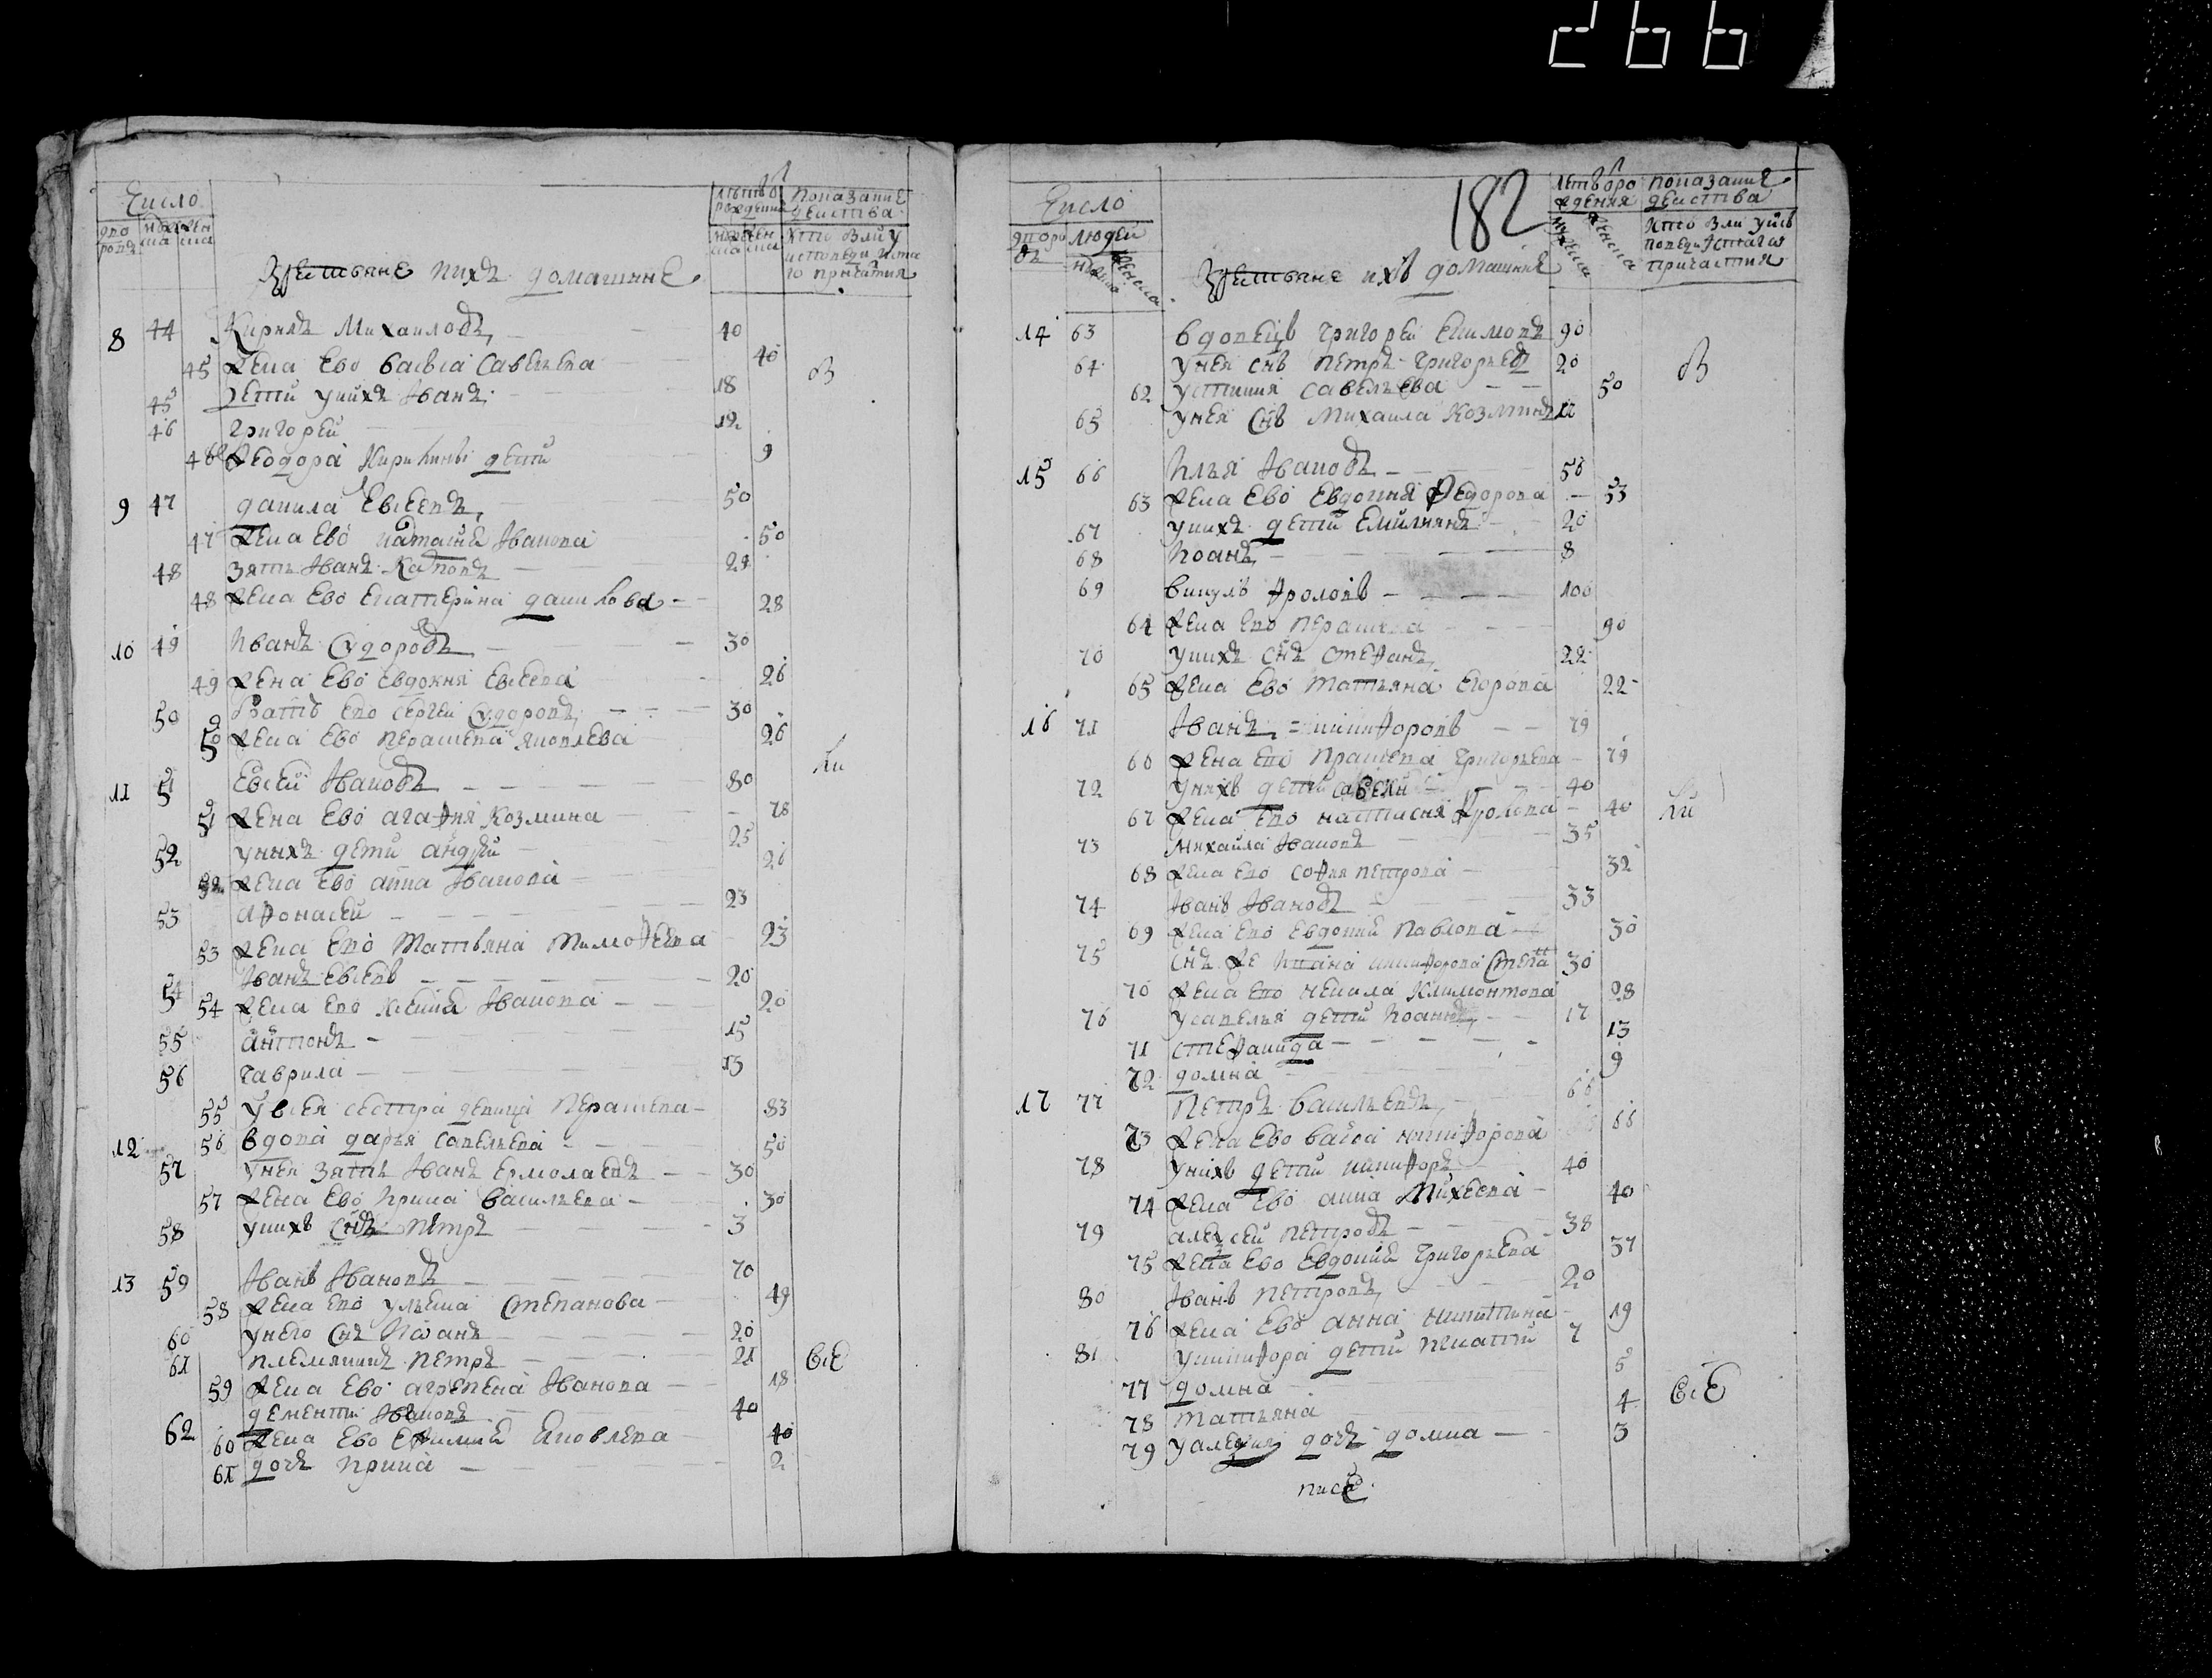 266
Число
дворовъ
мужеска женска
Крестьяне и ихъ домашние
лѣтъ от рождения
мужеска женска
показание действа
хто был у исповеди и святаго причастия
8 44 Кирилъ Михаиловъ 40
45 жена ево васъса Савельева 40
45 дети у нихъ Иванъ 18
46 григорей 12
46 Феодора Кириловы дети 9
9 47 данила Евсеевъ 50
47 жена ево наталья Иванова 50
48 зять Иванъ Карповъ 29
48 жена ево Екатерина данилова 28
10 49 Иванъ Сидоровъ 30
49 жена ево Евдокия Евсеева 26
50 братъ ево сергеи Сидоровъ 30
50 жена ево парашева яковлева 26
11 51 Евсей Ивановъ 80
51 жена ево агафия Козмина 78
52 у нихъ дети андрей 25
52 жена ево анна Иванова 26
53 афонасей 23
53 жена ево татьяна тимофеева 23
54 Иванъ Евсеевъ 20
54 жена ево Ксения Иванова 20
55 антонъ 15
56 гаврила 13
55 у Евсея сестра девица парашева 83
12 56 вдова дарья савельева 50
57 у нея зять Иванъ Ермолаевъ 30
57 жена ево Ирина васильева 30
58 у нихъ снъ петръ 3
13 59 Иванъ Ивановъ 70
58 жена ево ульяна степанова 49
60 у него снъ Иоанъ 20
61 племянникъ петръ 21
59 жена ево агрепена Иванова 18
62 дементей Ивановъ 40
60 жена ево Ефимия Яковлева 40
61 дочь Ирина 2
182
Число
дворовъ
людей
мужеска женска
Крестьяне ихъ домашние
летъ от рождения
мужеска женска
показание действа
хто был у исповеди и святаго причастия
14 63 вдовецъ григорей Екимовъ 90
64 у нея снъ петръ григорьевъ 20
62 устиния савельева 50
65 у нея снъ михаила Козминъ 12
15 66 Илья Ивановъ 56
63 жена ево Евдокия Федорова 53
67 у нихъ дети Емильянъ 20
68 Иоанъ 8
69 викулъ фроловъ 100
64 жена ево парашева 90
70 у нихъ снъ стефанъ 22
65 жена ево татьяна Егорова 22
16 71 Иванъ никифоровъ 79
66 жена ево прашева григорьева 79
72 у нихъ дети савелий 40
67 жена ево настасия фролова 40
73 михаила Ивановъ 35
68 жена ево софия петрова 32
74 Иванъ Ивановъ 33
69 жена ево Евдокия павлова 30
75 снъ же Ивана никифорова степа 30
70 жена ево ненила Климонтова 28
76 у савелья дети Иоаннъ 17
71 стефанида 13
72 домна 9
17 77 петръ васильевъ 66
73 жена ево васса никифорова 66
78 у нихъ дети никифоръ 40
74 жена ево анна михеева 40
79 алексей петровъ 38
75 жена ево Евдокия григорьева 37
80 Иванъ петровъ 20
76 жена ево анна никитина 19
81 у никифора дети игнатий 7
77 домна 5
78 татьяна 4
79 у алексия дочь домна 3